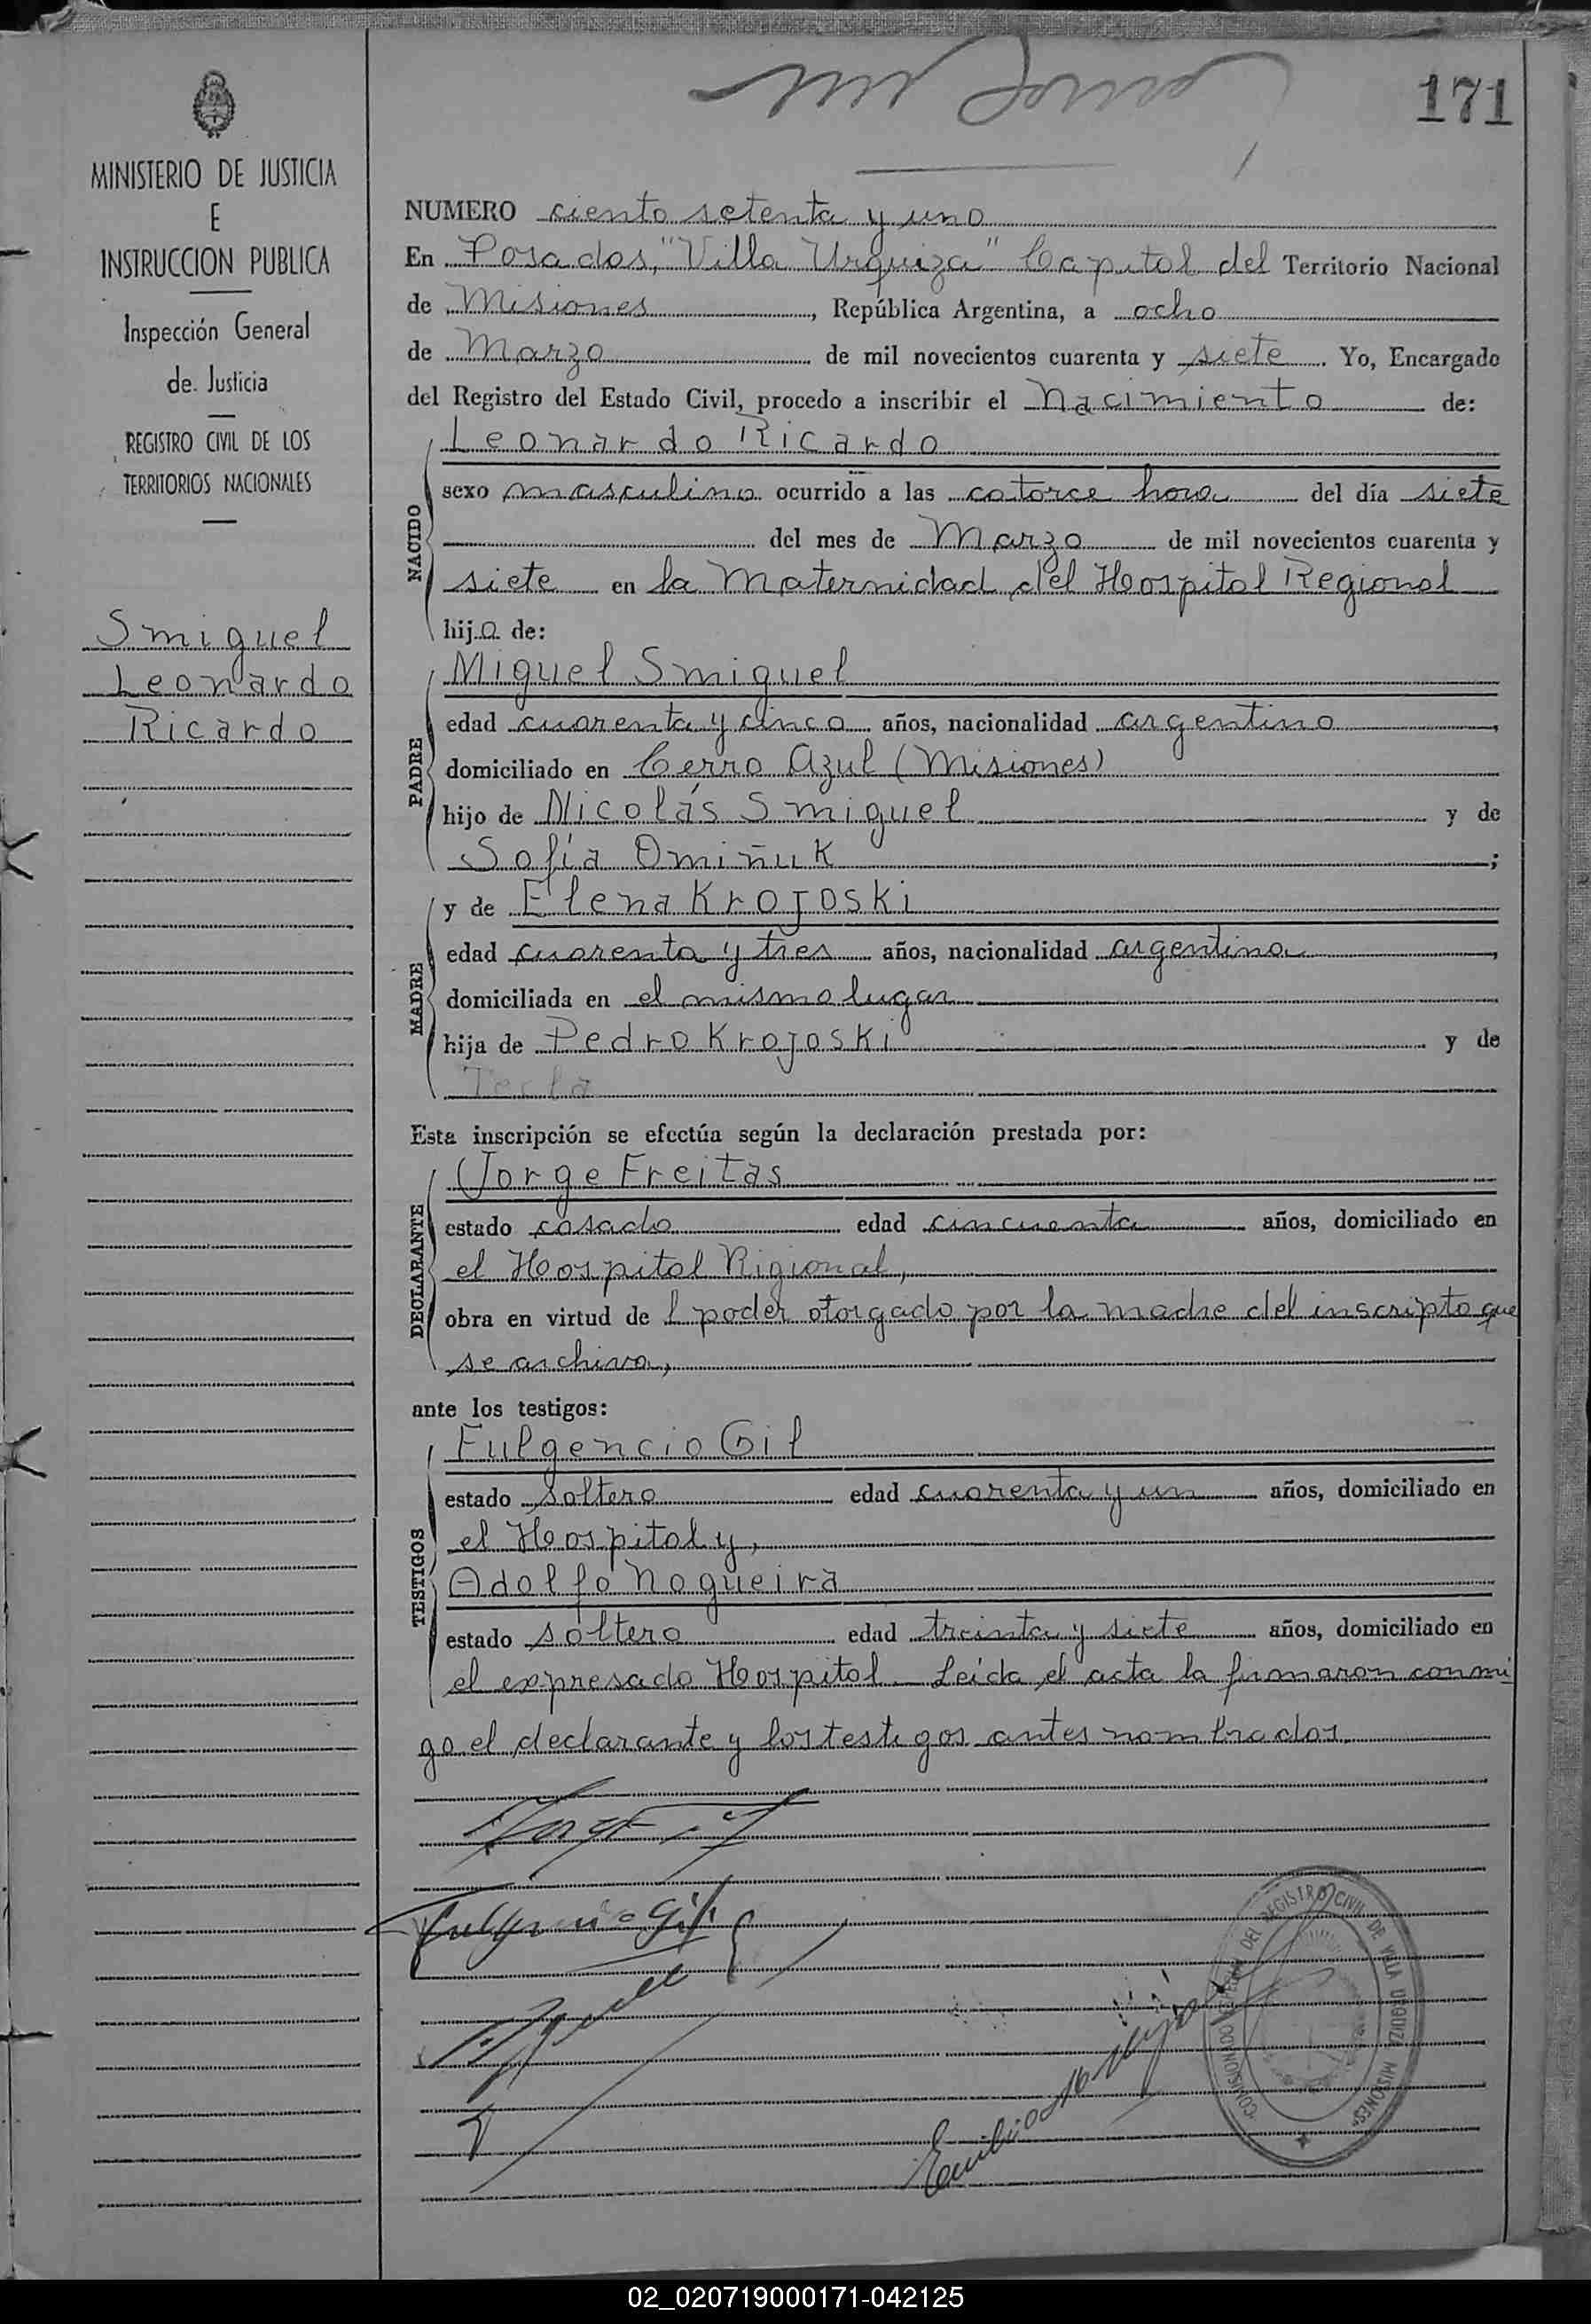 171
MINISTERIO DE JUSTICIA
E
INSTRUCCION PUBLICA
Inspección General
de Justicia
REGISTRO CIVIL DE LOS
TERRITORIOS NACIONALES
Smiguel
Leonardo
Ricardo
NUMERO ciento setenta y uno
En Posadas, "Villa Urquiza" Capital del Territorio Nacional
de Misiones, República Argentina, a ocho
de Marzo de mil novecientos cuarenta y siete. Yo, Encargado
del Registro del Estado Civil, procedo a inscribir el Nacimiento de:
NACIDO
Leonardo Ricardo
sexo masculino ocurrido a las catorce hora del día siete
del mes de Marzo de mil novecientos cuarenta y
siete en la Maternidad del Hospital Regional
hijo de:
PADRE
Miguel Smiguel
edad cuarenta y cinco años, nacionalidad argentino,
domiciliado en Cerro Azul (Misiones)
hijo de Nicolás Smiguel y de
Sofía Omiñuk;
MADRE
y de Elena Krojoski
edad cuarenta y tres años, nacionalidad argentina,
domiciliada en el mismo lugar
hija de Pedro Krojoski y de
Tecla
Esta inscripción se efectúa según la declaración prestada por:
DECLARANTE
Jorge Freitas
estado casado edad cincuenta años, domiciliado en
el Hospital Rigional,
obra en virtud de l poder otorgado por la madre del inscripto que
se archiva,
ante los testigos:
TESTIGOS
Fulgencio Gil
estado soltero edad cuarenta y un años, domiciliado en
el Hospital y,
Adolfo Nogueira
estado soltero edad treinta y siete años, domiciliado en
el expresado Hospital. Leida el acta la firmaron conmi
go el declarante y los testigos antes nombrados.
Fulgencio Gil
Emilio
COMISIONADO DEL REGISTRO CIVIL DE VILLA URQUIZA MISIONES
02_020719000171-042125